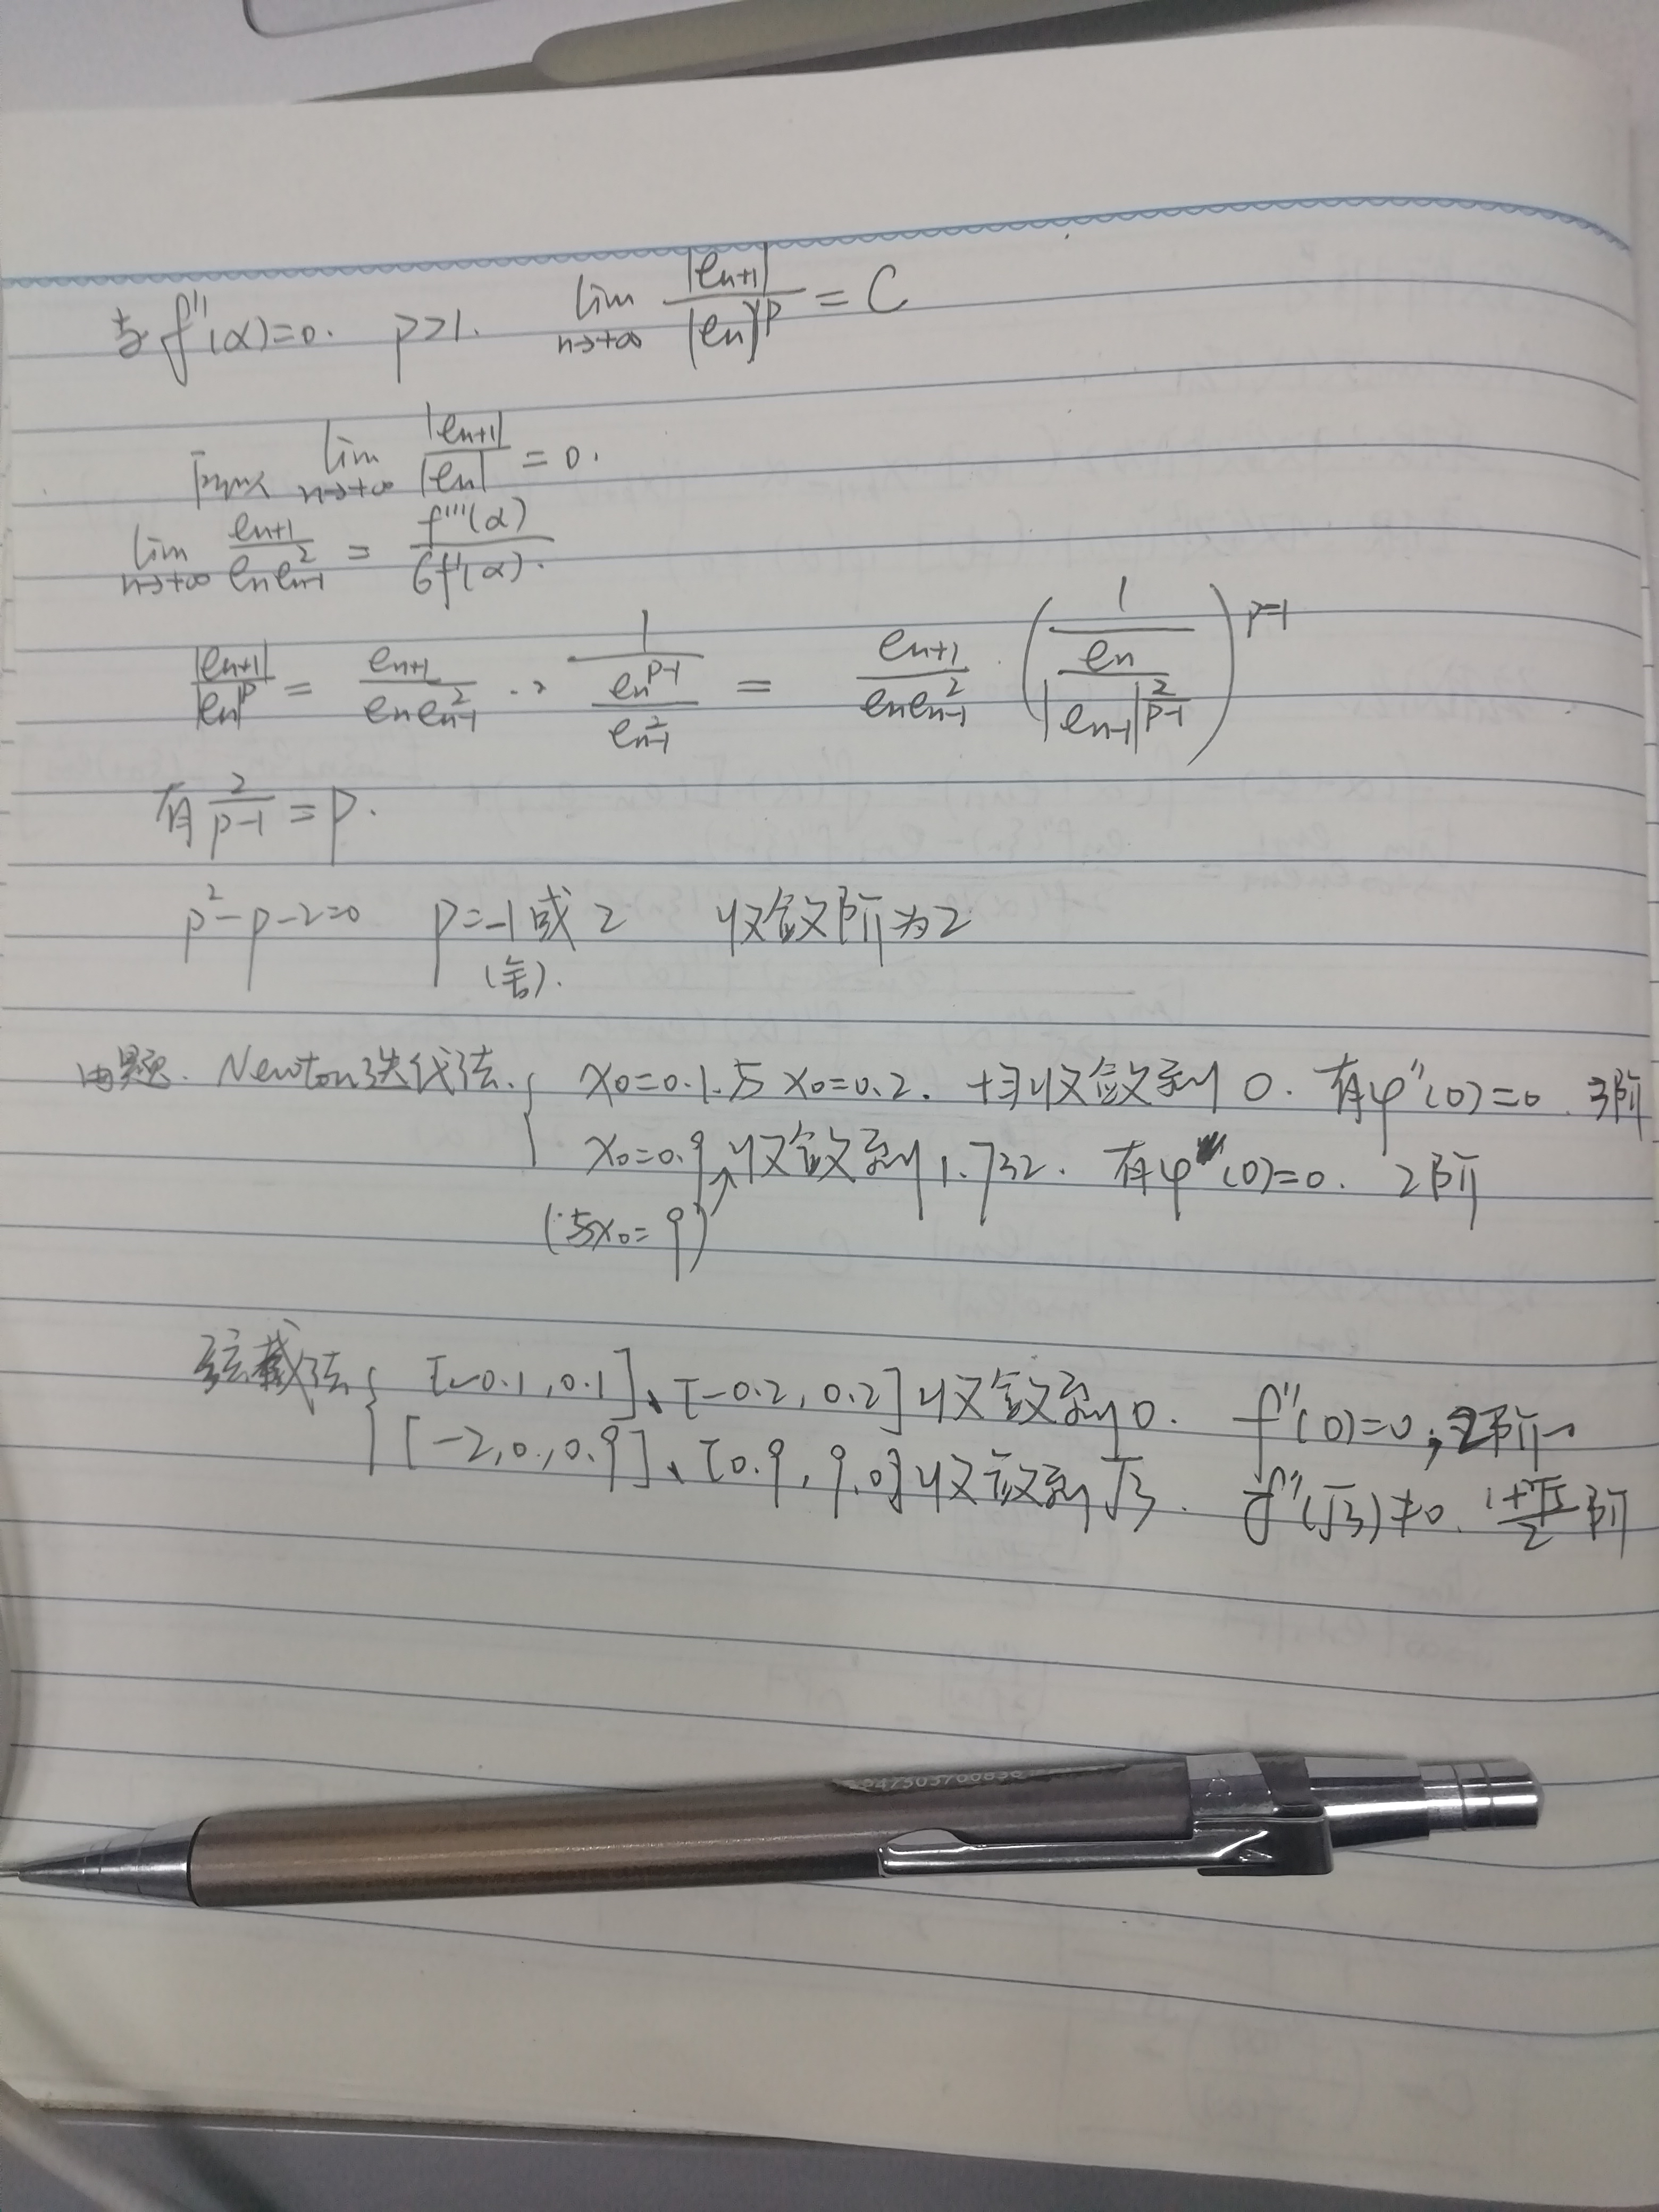 与f''(α)=0. p>1. lim n→+∞ |en+1|/|en|^p = C
lim n→+∞ |en+1|/|en| = 0.
lim n→+∞ en+1/(en en-1^2) = f'''(α)/(6f'(α)).
|en+1|/|en|^p = en+1/(en en-1^2) · 1/(en^(p-1)/en-1^2) = en+1/(en en-1^2) · (1/(en/|en-1|^(2/(p-1))))^(p-1)
有 2/(p-1) = p.
p^2-p-2=0 p=-1或2 收敛阶为2
(舍).
由题. Newton迭代法. { x0=0.1.与x0=0.2. 均收敛到0. 有φ''(0)=0. 3阶
x0=0.9 收敛到1.732. 有φ'(0)=0. 2阶
(与x0=9)
弦截法 { [-0.1,0.1]、[-0.2,0.2]收敛到0. f''(0)=0, 2阶
[-2,0.,0.9]、[0.9,9.0]收敛到√3. f''(√3)≠0. (1+√5)/2阶
9475037008